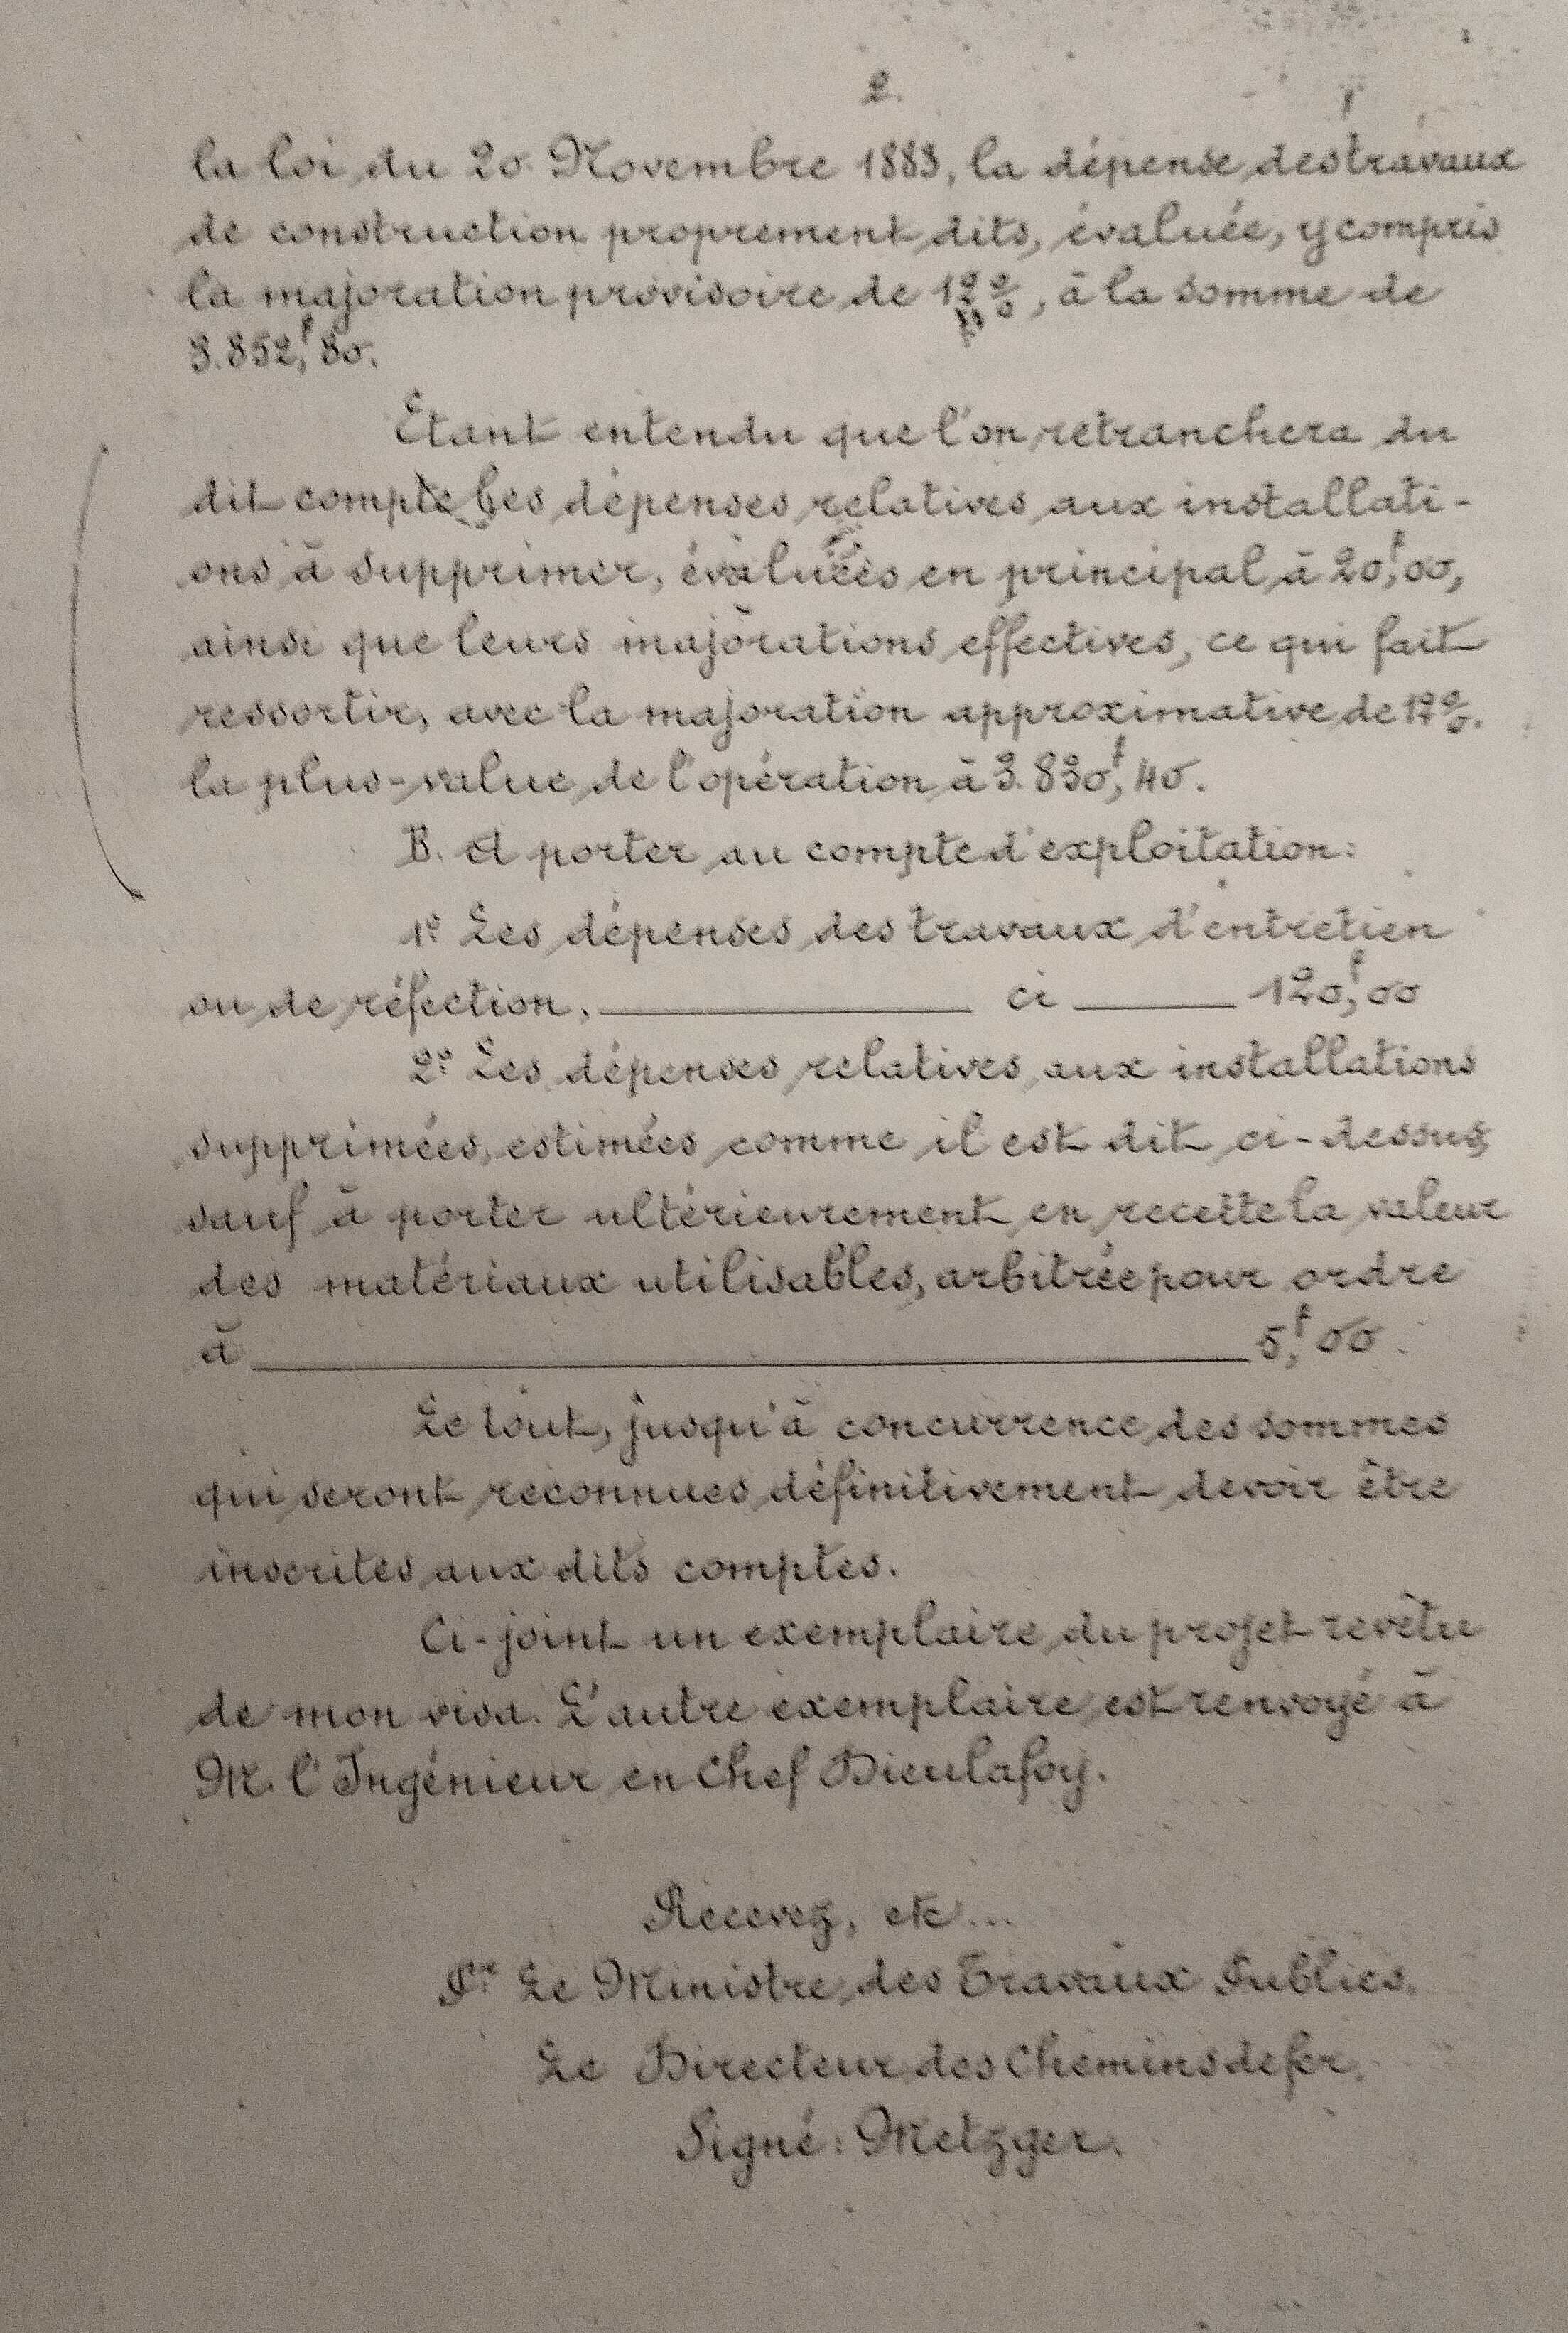 2.
la loi du 20 Novembre 1883, la dépense des travaux
de construction proprement dits, évaluée, y compris
la majoration provisoire de 12 %, à la somme de
3.852,f 80.
Etant entendu que l'on retranchera du
dit compte les dépenses relatives aux installati-
ons à supprimer, évaluées en principal à 20,f 00,
ainsi que leurs majorations effectives, ce qui fait
ressortir, avec la majoration approximative de 12 %.
la plus-value de l'opération à 3.830,f 40.
B. A porter au compte d'exploitation:
1º Les dépenses des travaux d'entretien
ou de réfection, ci 120,f 00
2º Les dépenses relatives aux installations
supprimées, estimées comme il est dit ci-dessus,
sauf à porter ultérieurement en recette la valeur
des matériaux utilisables, arbitrée pour ordre
à 5,f 00.
Le tout, jusqu'à concurrence des sommes
qui seront reconnues définitivement devoir être
inscrites aux dits comptes.
Ci-joint un exemplaire du projet revêtu
de mon visa. L'autre exemplaire est renvoyé à
M. l'Ingénieur en Chef Dieulafoy.
Recevez, etc...
Pr Le Ministre des Travaux Publics.
Le Directeur des Chemins de fer.
Signé: Metzger.